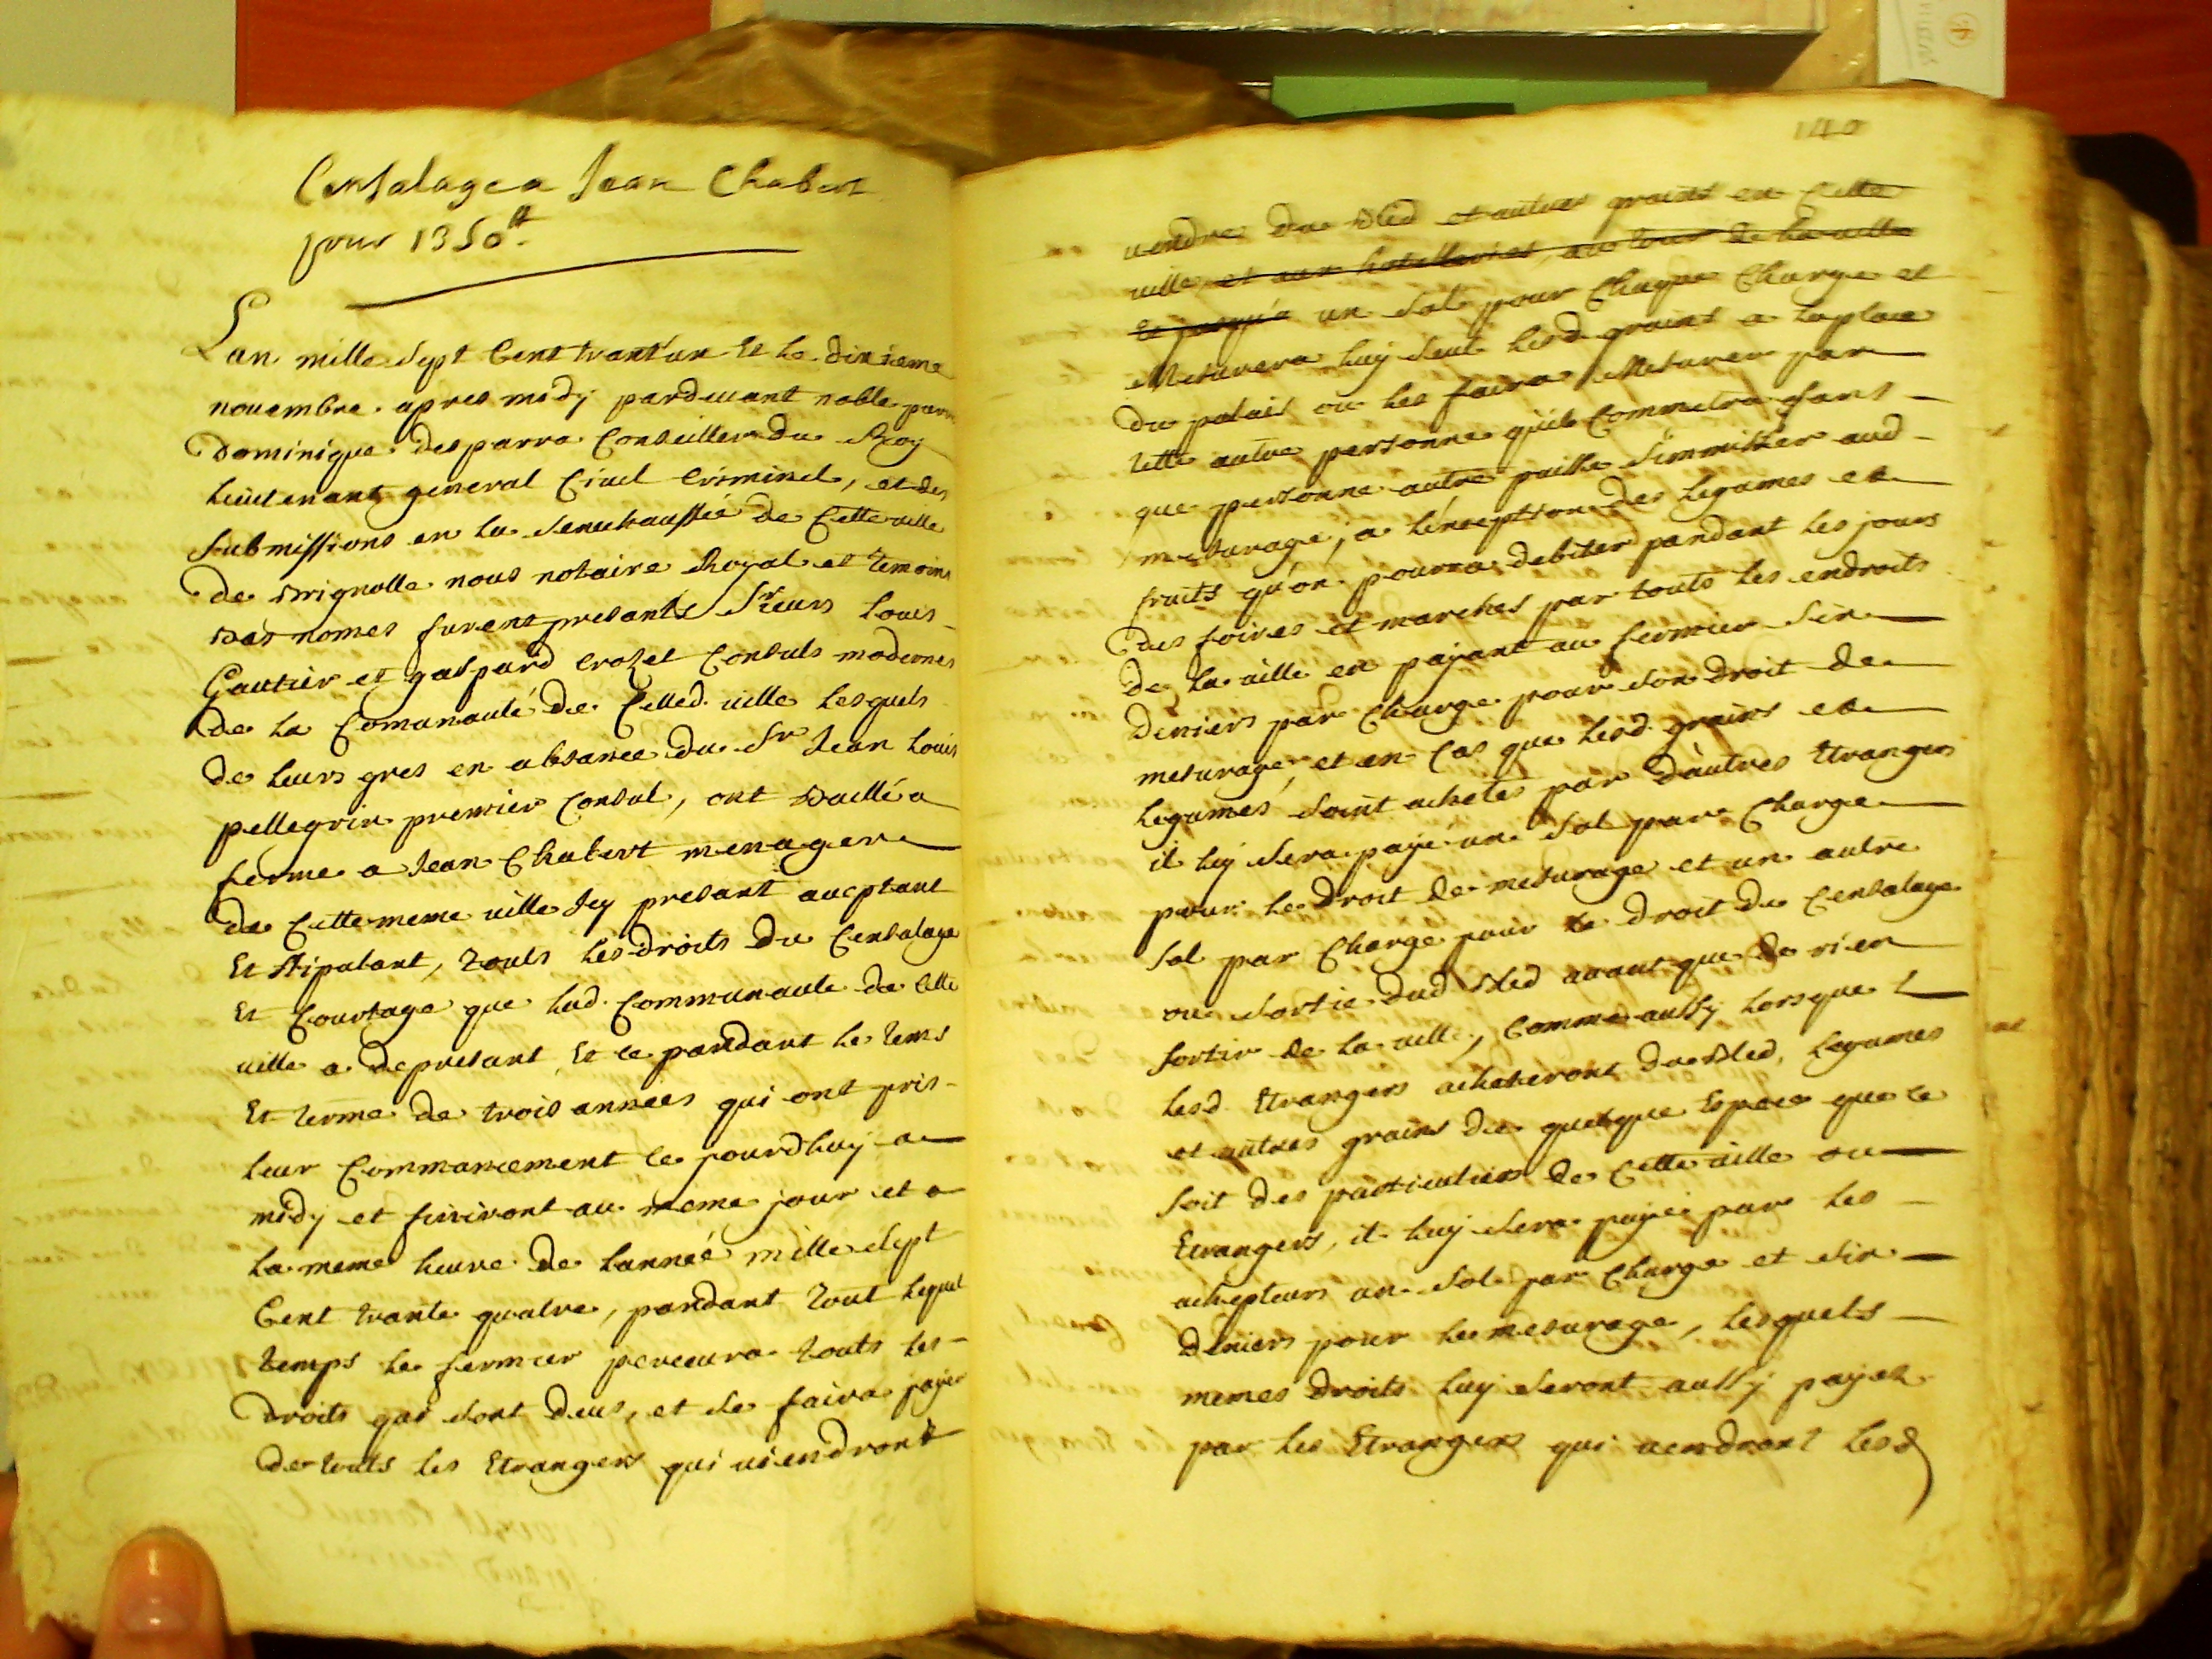 Censalage a Jean Chabert
pour 1350ᵗᵗ
Lan mille sept Cent trant'un Et le dixieme
novembre apres midy pardevant noble
Dominique desparra Conseiller du Roy
lieutenant general Civil Criminel, et des
submissions en la senechaussée de Cette ville
de Brignolle nous notaire Royal et temoins
Bas nomes furent presants Sieurs louis
Gautier et gaspard Crozet Consuls modernes
de la Comunauté de Cetted. ville lesquels
de leurs gres en absance du Sr Jean louis
pellegrin premier Consul, ont Baillé a
ferme a Jean Chabert menager
de Cette meme ville Icy presant aceptant
Et stipulant, touts les droits du Censalage
Et Courtage que lad. Communaute de Cette
ville a de presant Et ce pandant le tems
Et terme de trois années qui ont pris
leur Commancement ce jourdhuy a
midy et finiront au meme jour et a
la meme heure de lannéé mille sept
Cent trante quatre, pandant tout lequel
temps le fermier percevra touts les
droits qui sont deus, et se faira payer
de touts les Etrangers qui viendront
140
vendre du Bled et autres grains en Cette
ville et aux hotelleries, au tour de la ville
Et jusqu'a un sol pour Chaque Charge et
Mesurera luy seul lesd. grains a la place
du palais ou les faira Mesurer par
telle autre personne qu'il Commetra sans
que personne autre puisse s'immisser aud
mesurage, a l'exception des legumes et
fruits qu'on pourra debiter pandant les jours
des foires et marches par touts les endroits
de la ville en payant au fermier six
deniers par Charge pour son droit de
mesurage, et en Cas que lesd. grains et
legumes soint achetes par d'autres Etrangers
il luy sera payé un sol par Charge
pour le droit de mesurage et un autre
sol par Charge pour le droit du Censalage
ou sortie dud Bled avant que de rien
sortir de la ville, Comme aussy lorsque
lesd. Etrangers acheteront du Bled, legumes
et autres grains de quelque Espece que ce
soit des particuliers de Cette ville ou
Etrangers, il luy sera payé par les
achepteurs un sol par Charge et six
deniers pour le mesurage, lesquels
memes droits luy seront aussy payes
par les Etrangers qui vendront lesd